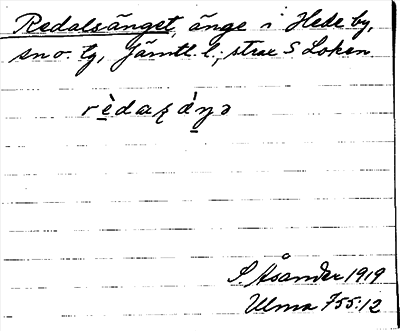 Redalsänget, änge i Hede by,
sn o. tg, Jämtl. l., strax S Loken.
rèdaʂàŋə
S. Åsander 1919
Ulma 755:12